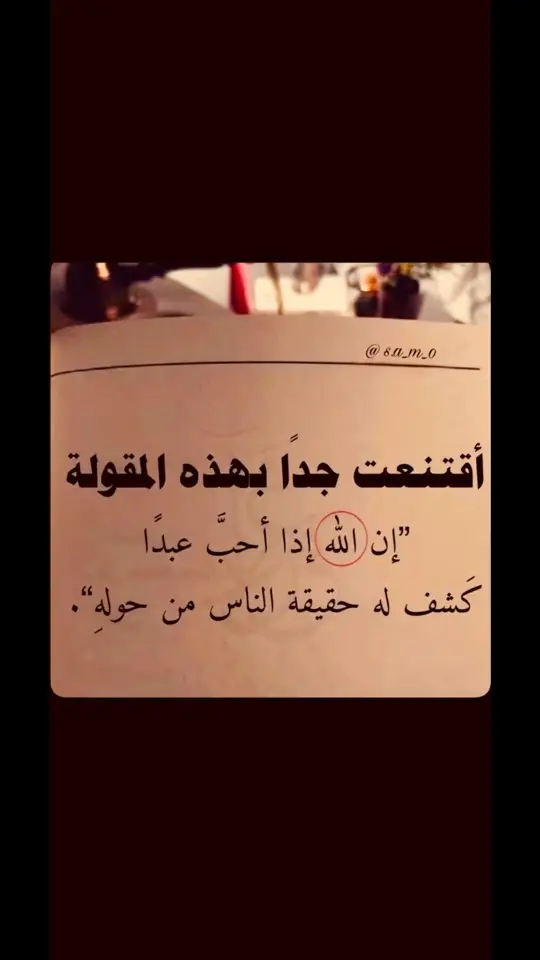 @ s.a_m_o
أقتنعت جدًا بهذه المقولة
”إن الله إذا أحبَّ عبدًا
كَشف له حقيقة الناس من حولهِ“.